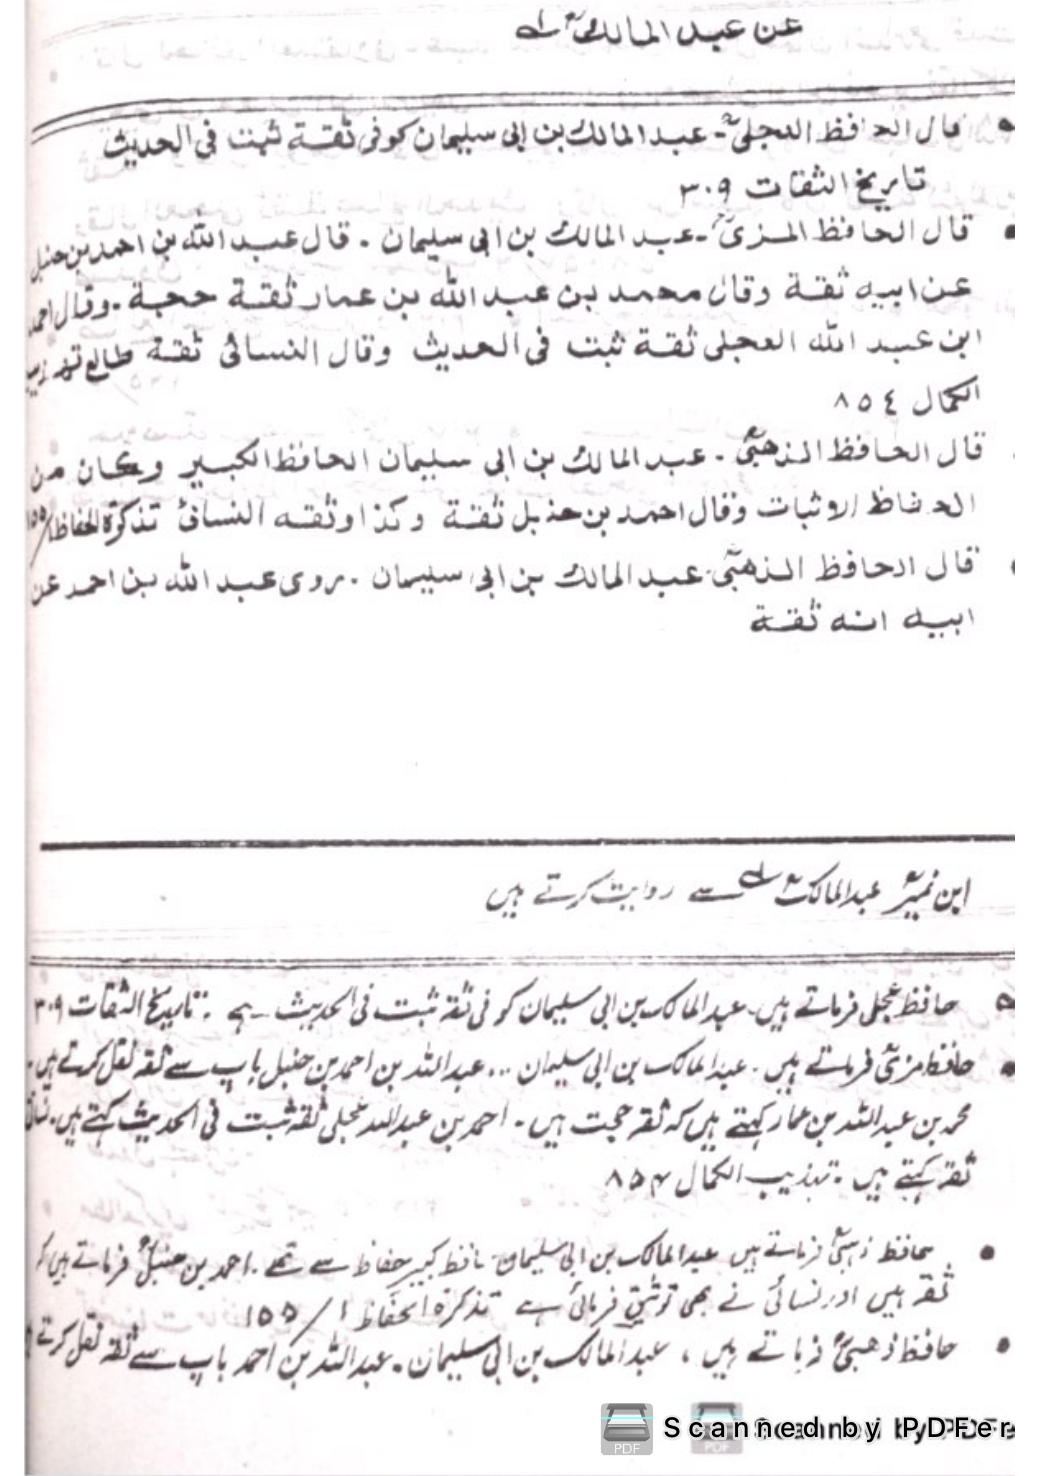 عن عبد المالك
• قال الحافظ العجلیؒ۔ عبد المالك بن ابی سلیمان کوفی ثقة ثبت فی الحدیث
تاریخ الثقات ۳۰۹
• قال الحافظ المزیؒ۔ عبد المالك بن ابی سلیمان ۔ قال عبد الله بن احمد بن حنبل
عن ابیه ثقة وقال محمد بن عبد الله بن عمار ثقة حجة ۔ وقال احمد
ابن عبد الله العجلی ثقة ثبت فی الحدیث وقال النسائی ثقة
الکمال ٨٥٤
قال الحافظ الذهبیؒ ۔ عبد المالك بن ابی سلیمان الحافظ الکبیر وکان من
الحفاظ الاثبات وقال احمد بن حنبل ثقة وکذا وثقه النسائی تذکرة الحفاظ
• قال الحافظ الذهبیؒ عبد المالك بن ابی سلیمان ۔ روی عبد الله بن احمد عن
ابیه انه ثقة
ابن نمیرؒ عبدالمالکؒ سے روایت کرتے ہیں
• حافظ عجلی فرماتے ہیں۔ عبدالمالک بن ابی سلیمان کوفی ثقہ ثبت فی الحدیث ہے ۔ تاریخ الثقات ۳۰۹
• حافظ مزیؒ فرماتے ہیں ۔ عبدالمالک بن ابی سلیمان ... عبداللہ بن احمد بن حنبل باپ سے ثقہ نقل کرتے ہیں۔
محمد بن عبداللہ بن عمار کہتے ہیں کہ ثقہ حجت ہیں ۔ احمد بن عبداللہ عجلی ثقہ ثبت فی الحدیث کہتے ہیں۔
ثقہ کہتے ہیں ۔ تہذیب الکمال ۸۵۴
• حافظ ذہبیؒ فرماتے ہیں عبدالمالک بن ابی سلیمان۔ حافظ کبیر حفاظ سے تھے ۔ احمد بن حنبلؒ فرماتے ہیں کہ
ثقہ ہیں اور نسائی نے بھی توثیق فرمائی ہے تذکرة الحفاظ ۱/۱۵۵
• حافظ ذھبیؒ فرماتے ہیں ، عبدالمالک بن ابی سلیمان ۔ عبداللہ بن احمد باپ سے ثقہ نقل کرتے
PDF Scanned by PDFer
PDF Scanned by PDFe